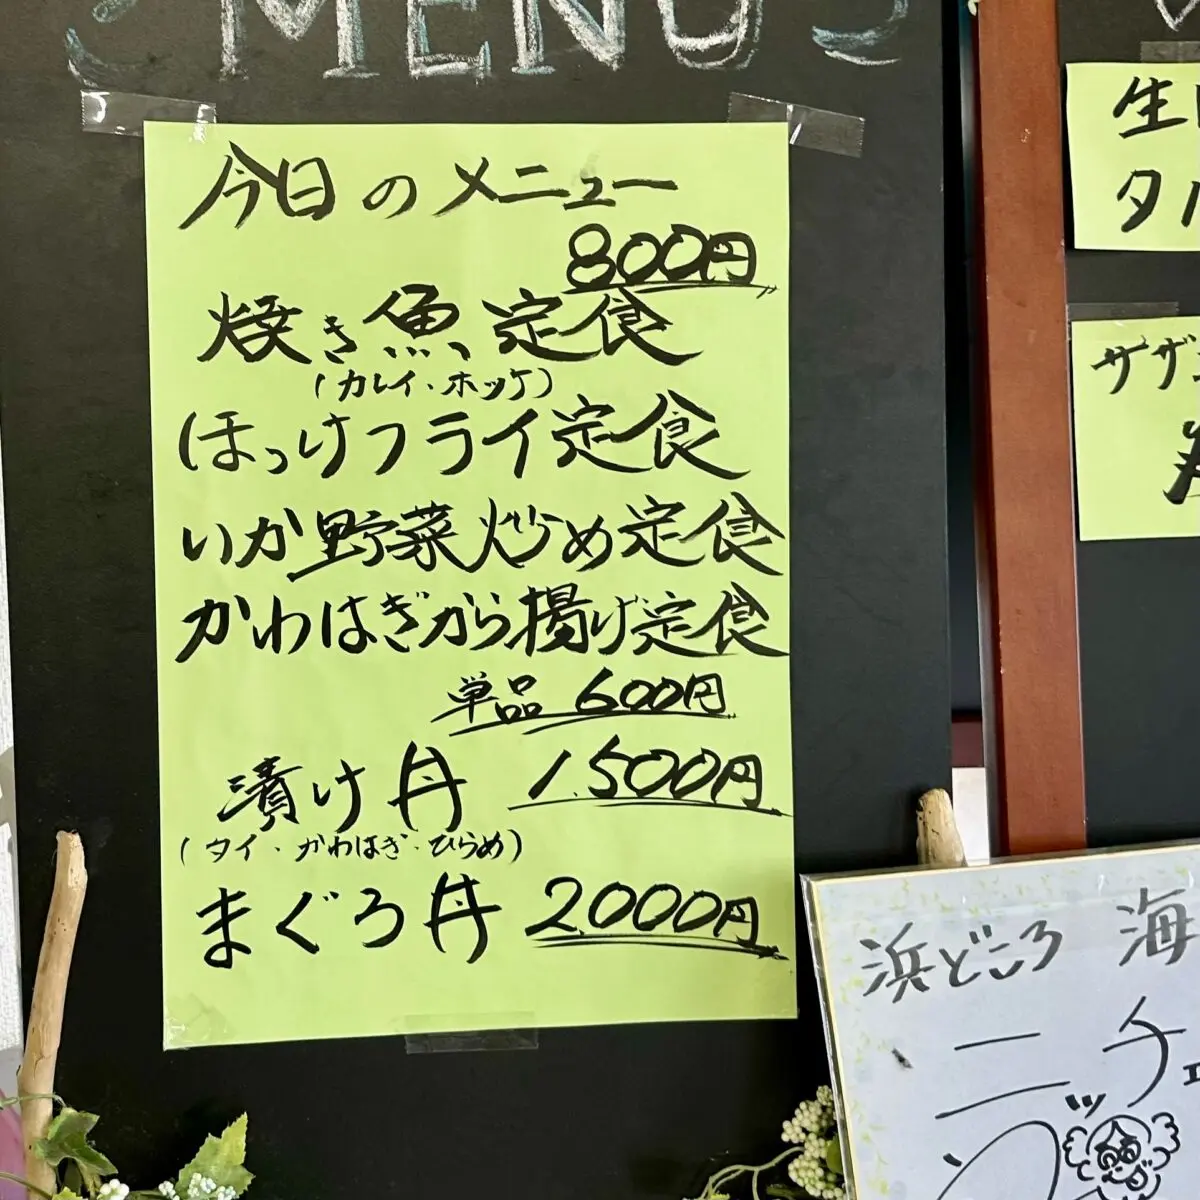 MENU
今日のメニュー
800円
焼き魚定食
(カレイ・ホッケ)
ほっけフライ定食
いか野菜炒め定食
かわはぎから揚げ定食
単品 600円
漬け丼 1,500円
(タイ・かわはぎ・ひらめ)
まぐろ丼 2,000円
生
タル
サザ
浜どころ 海
ニッチェ